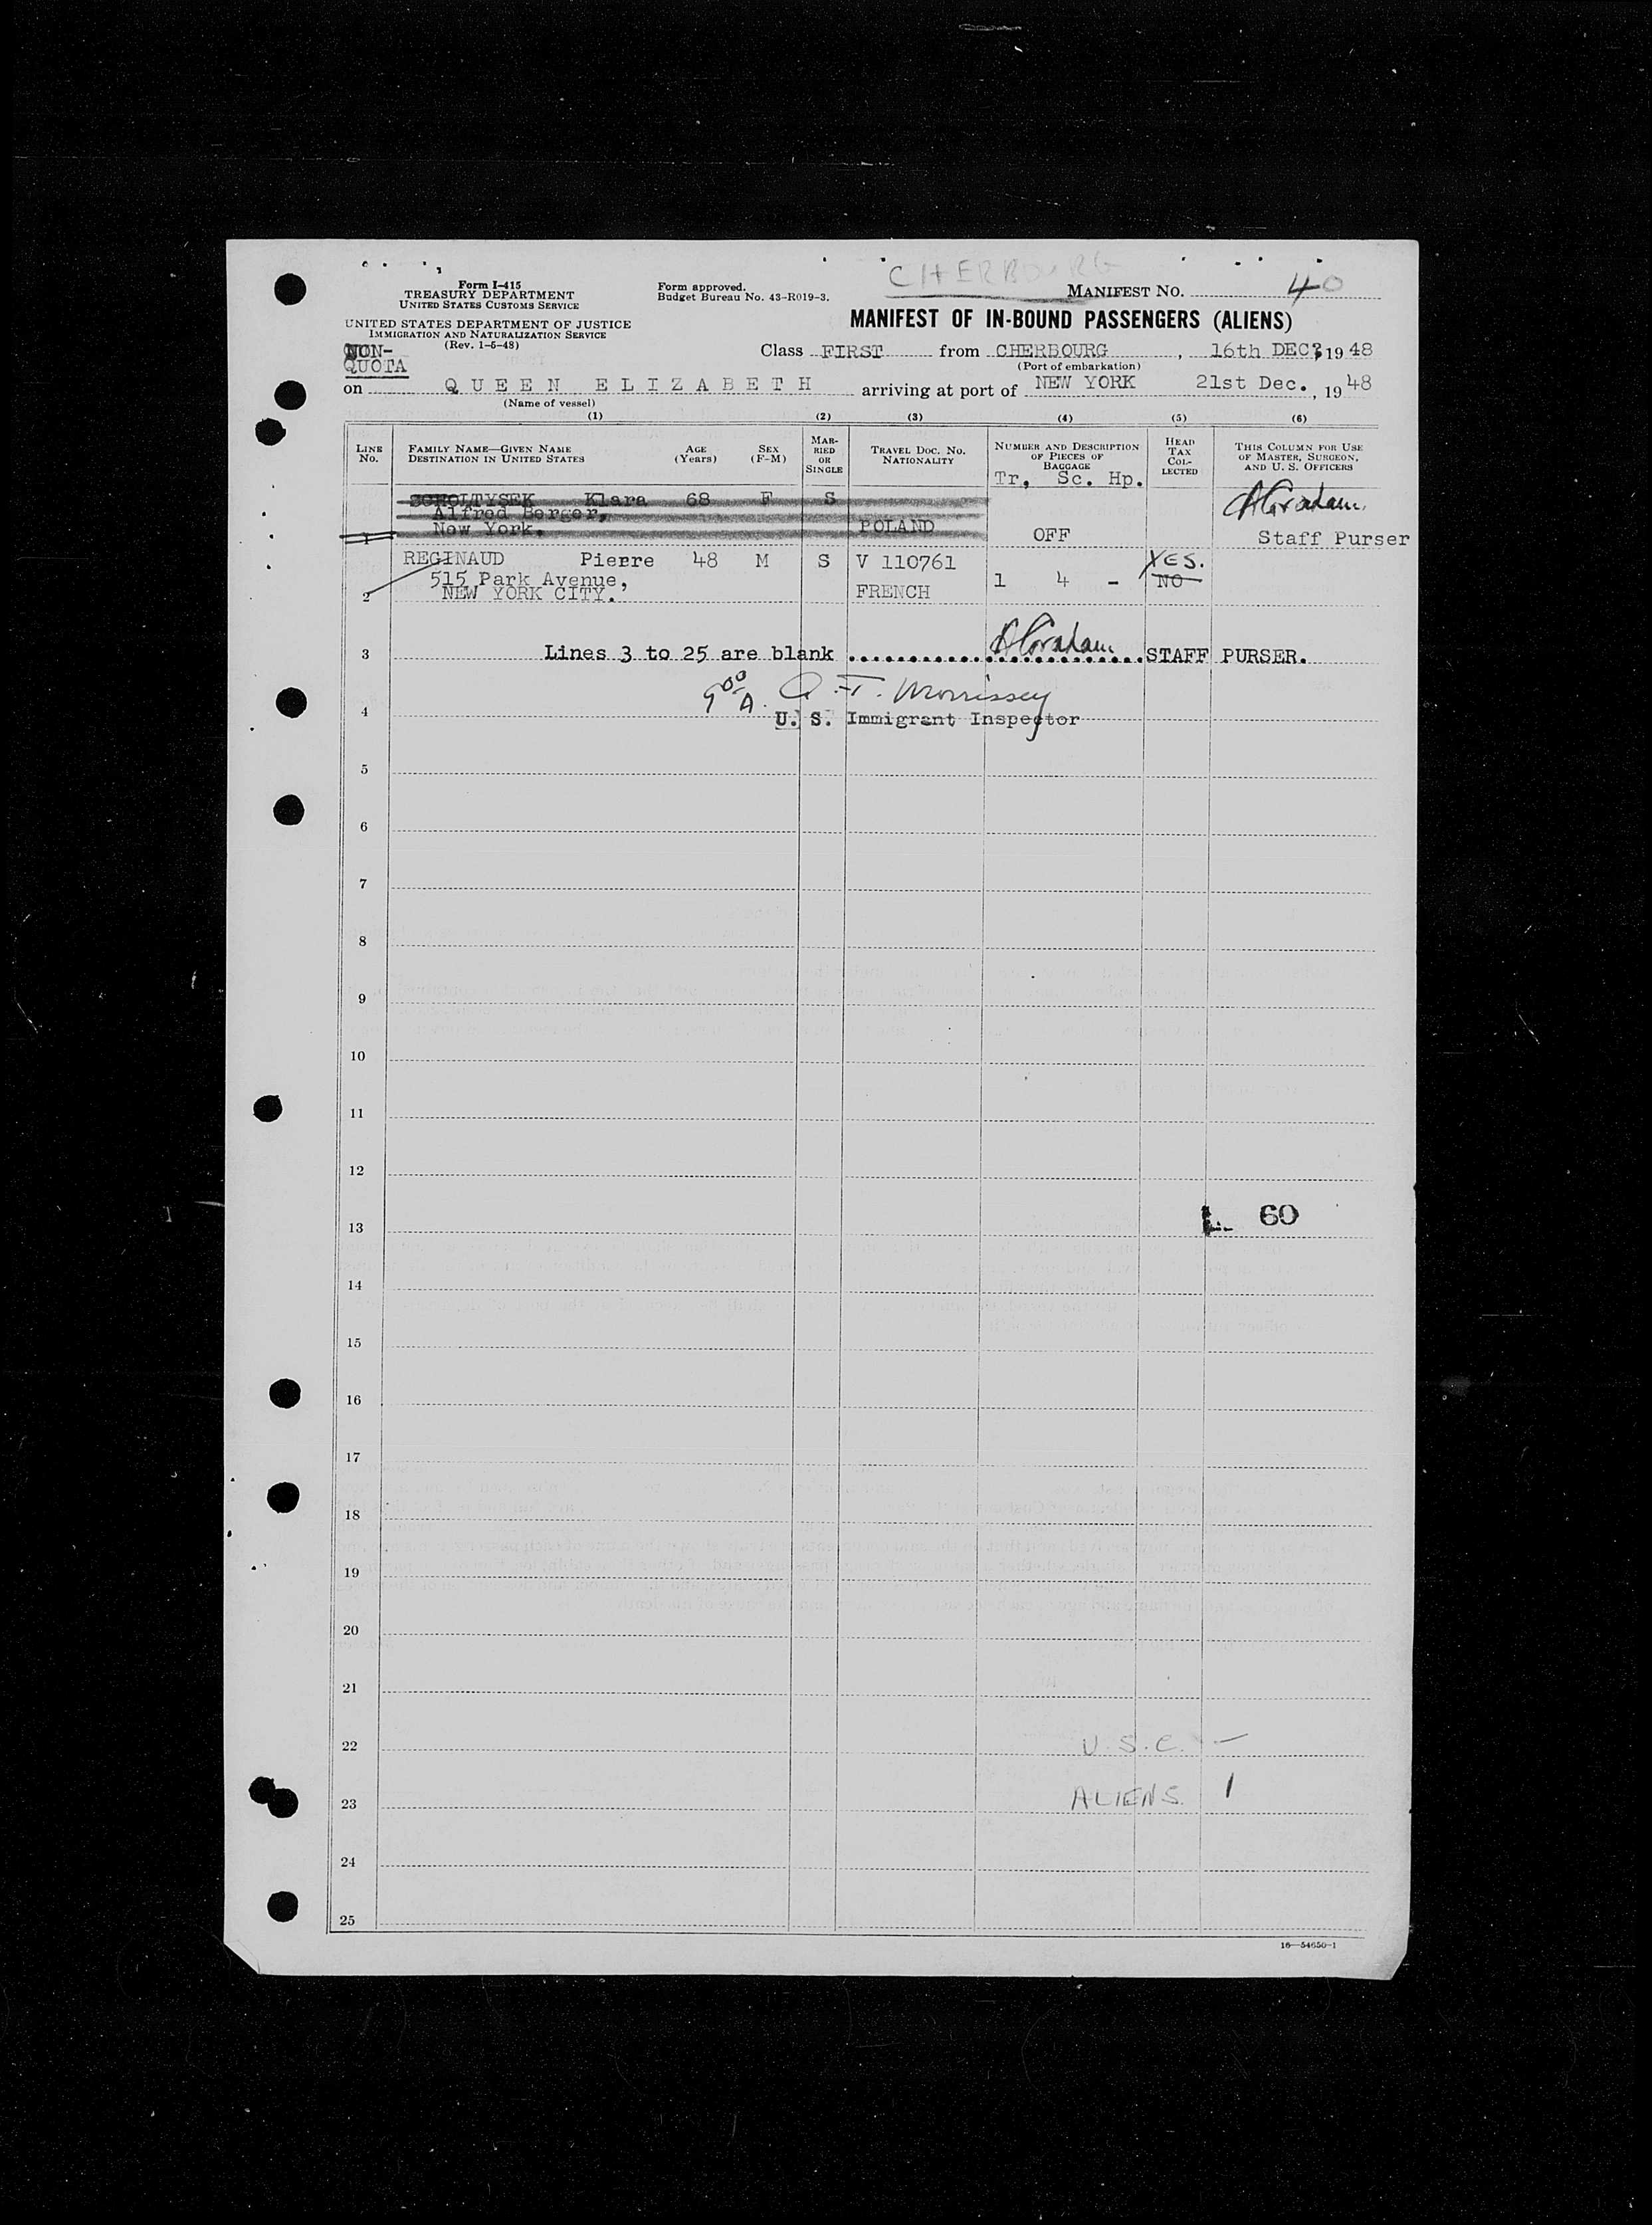 CHERBOURG
Form I-415
TREASURY DEPARTMENT
UNITED STATES CUSTOMS SERVICE
Form approved.
Budget Bureau No. 43-R019-3.
MANIFEST NO. 40
UNITED STATES DEPARTMENT OF JUSTICE
IMMIGRATION AND NATURALIZATION SERVICE
(Rev. 1-5-48)
MANIFEST OF IN-BOUND PASSENGERS (ALIENS)
NON-
QUOTA
Class FIRST from CHERBOURG, 16th DEC, 1948
(Port of embarkation)
on QUEEN ELIZABETH arriving at port of NEW YORK 21st Dec., 1948
(Name of vessel)
(1) (2) (3) (4) (5) (6)
LINE No.
FAMILY NAME—GIVEN NAME
DESTINATION IN UNITED STATES
AGE (Years)
SEX (F-M)
MARRIED OR SINGLE
TRAVEL DOC. No.
NATIONALITY
NUMBER AND DESCRIPTION OF PIECES OF BAGGAGE
Tr, Sc. Hp.
HEAD TAX COLLECTED
THIS COLUMN FOR USE OF MASTER, SURGEON, AND U. S. OFFICERS
SCHOLTYSEK Klara 68 F S
Alfred Berger,
New York. POLAND
1 OFF AGraham. Staff Purser
REGINAUD Pierre 48 M S V 110761 YES.
515 Park Avenue, 1 4 - NO
2 NEW YORK CITY. FRENCH
3 Lines 3 to 25 are blank AGraham STAFF PURSER.
9 00 A. A. T. Morrissey
4 U. S. Immigrant Inspector
5
6
7
8
9
10
11
12
13 60
14
15
16
17
18
19
20
21
22 U.S.C. —
23 ALIENS 1
24
25
16—54650-1